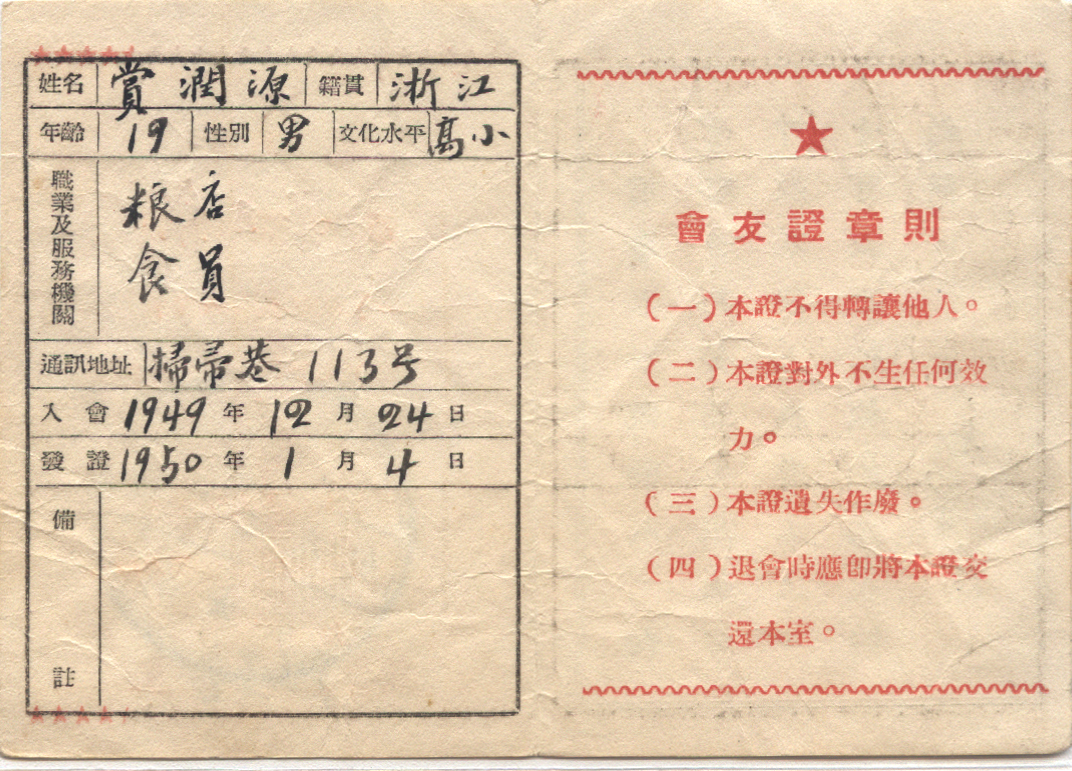 姓名 賞潤源 籍貫 浙江
年齡 19 性別 男 文化水平 高小
職業及服務機關 粮食店員
通訊地址 掃帚巷113号
入會 1949年12月24日
發證 1950年1月4日
備註
會友證章則
(一)本證不得轉讓他人。
(二)本證對外不生任何效
力。
(三)本證遺失作廢。
(四)退會時應卽將本證交
還本室。